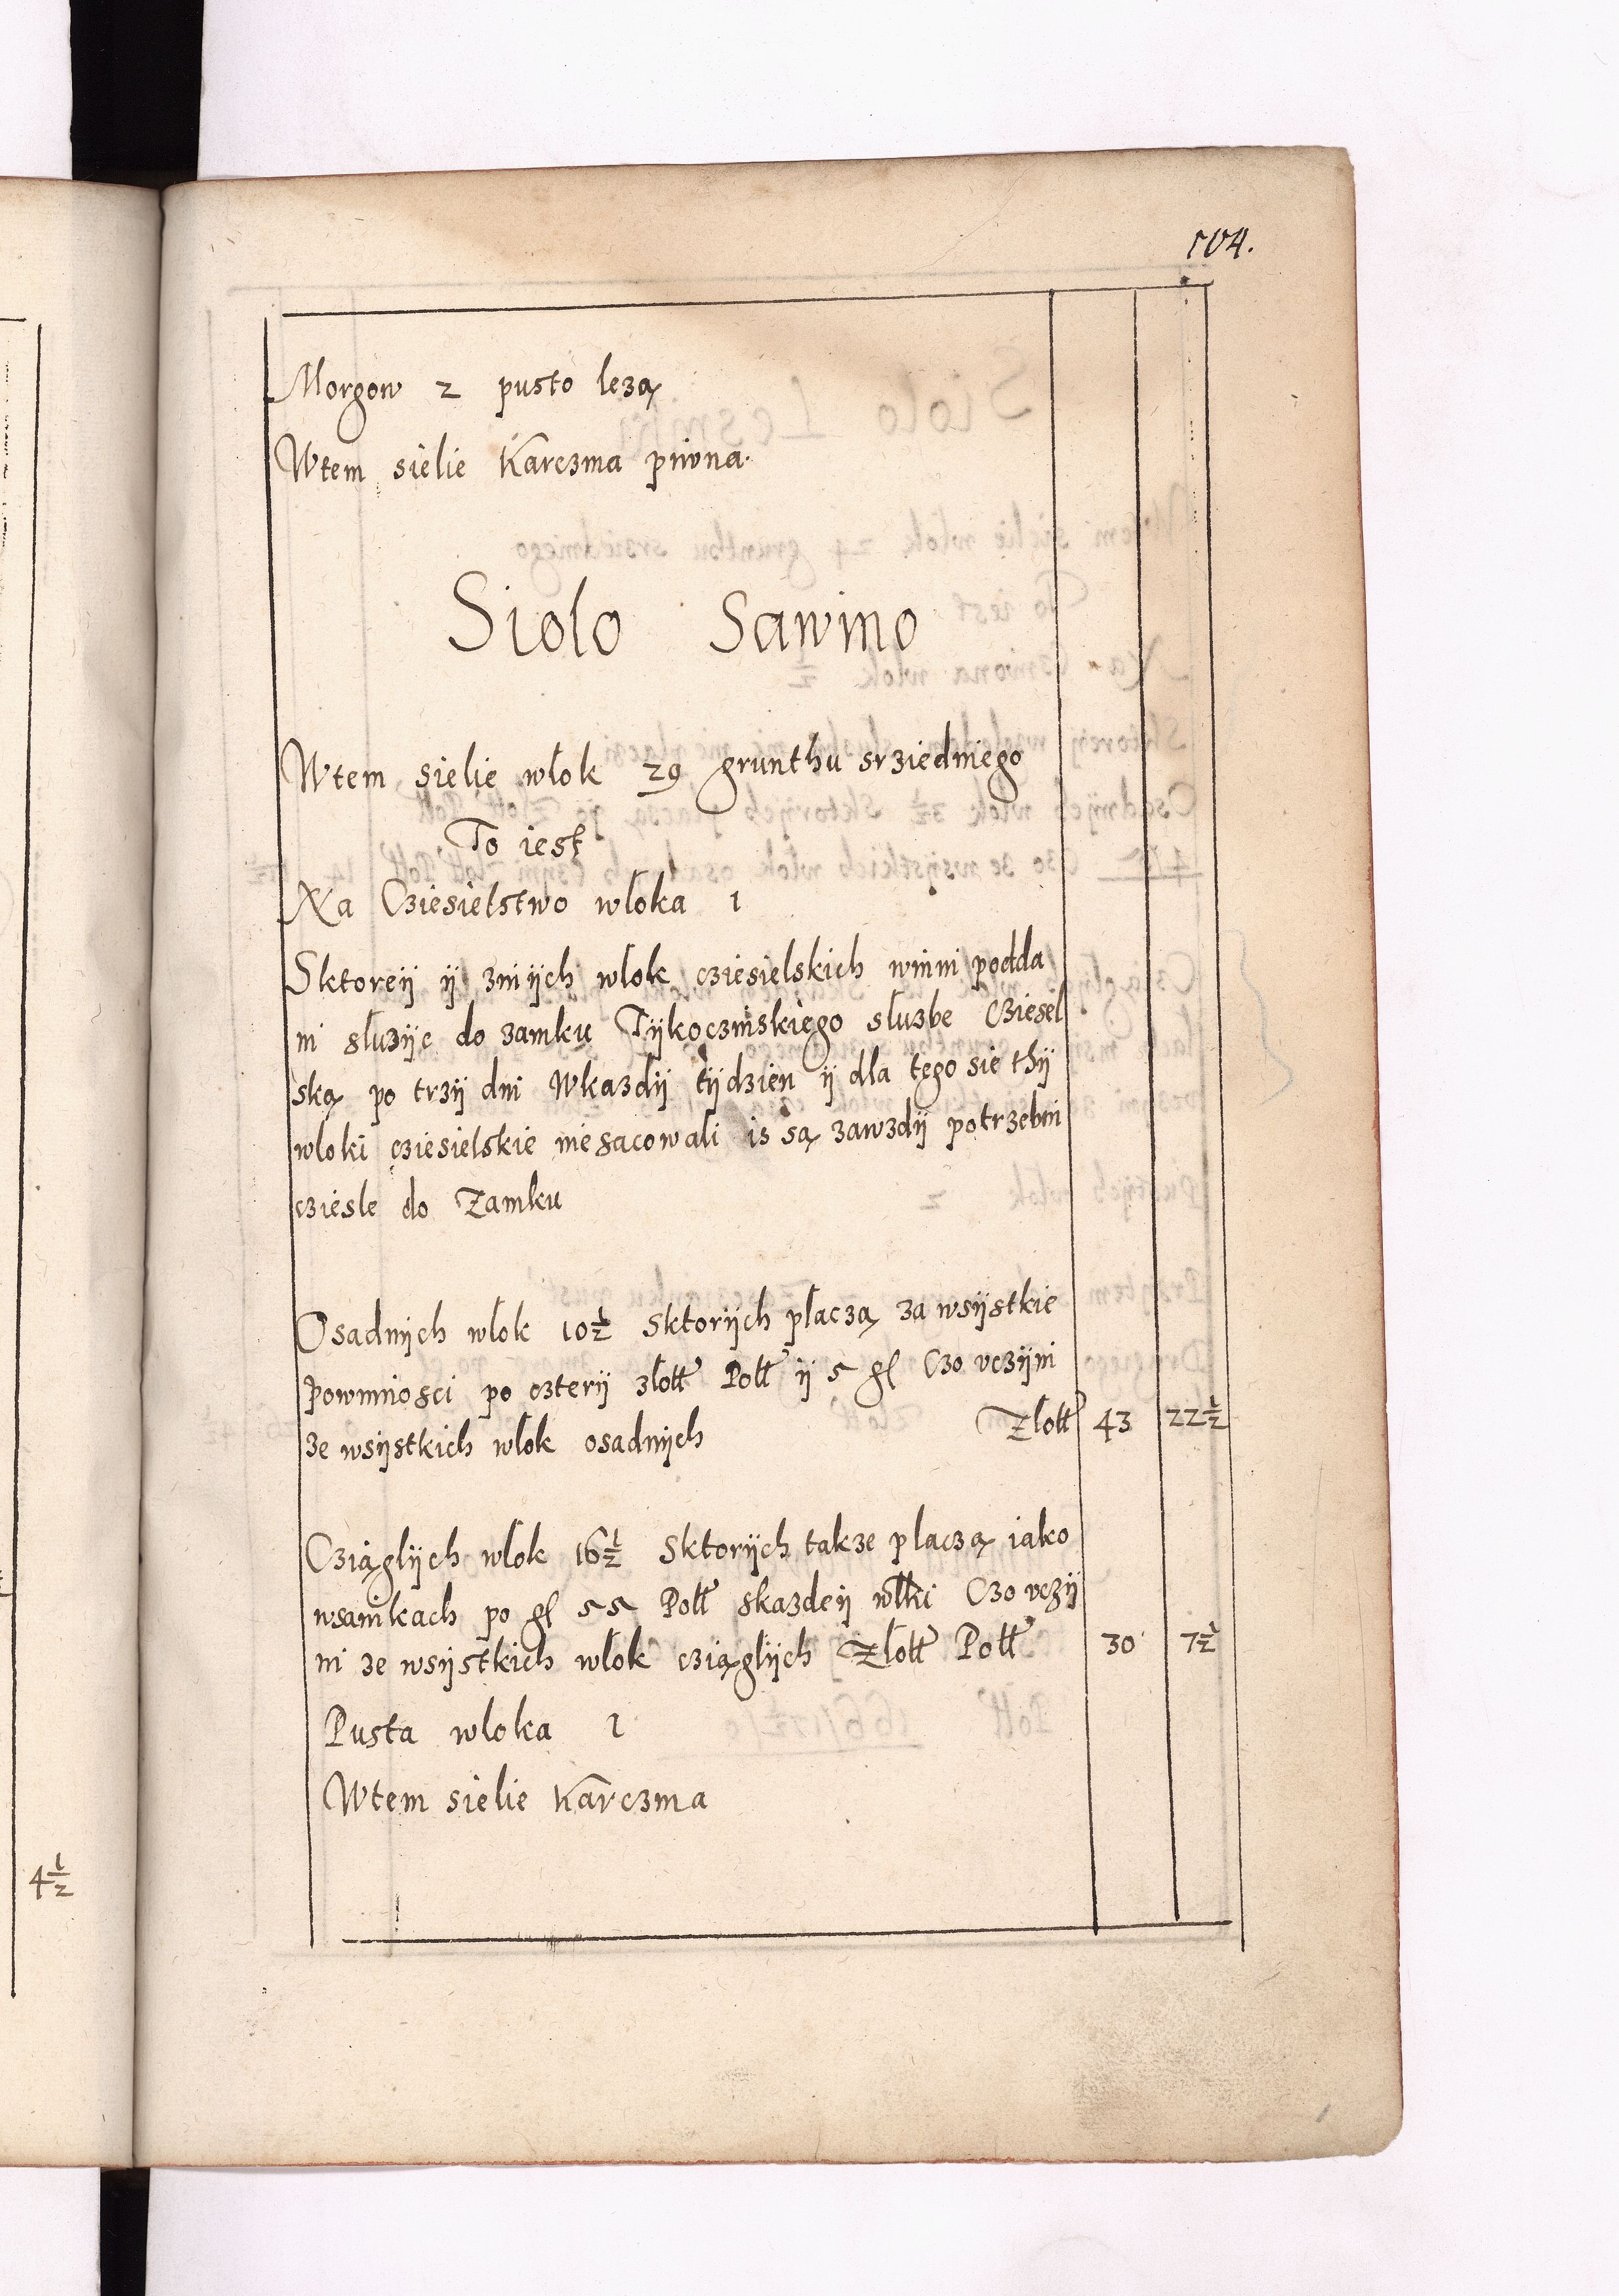 104.
Morgow 2 pusto lezą
Wtem sielie Karczma piwna.
Siolo Sawino
Wtem sielie wlok 29 grunthu srziedniego
To iest
Na Cziesielstwo wloka 1
Sktoreÿ ÿ znÿch wlok cziesielskich winni podda
ni sluzÿc do zamku Tÿkoczinskiego sluzbe Cziesel
ską po trzÿ dni Wkazdÿ tÿdzien ÿ dla tego sie thÿ
wloki cziesielskie nie sacowali is są zawzdÿ potrzebni
cziesle do Zamku
Osadnÿch wlok 10½ Sktorÿch placzą za wsÿstkie
powinnosci po czterÿ zlott Poll ÿ 5 gl Czo vczÿni
ze wsÿstkich wlok osadnÿch Zlott 43 22½
Cziąglÿch wlok 16½ Sktorÿch takze placzą iako
wsanikach po gl 55 Poll skazdeÿ wlki Czo vczÿ
ni ze wsÿstkich wlok cziąglÿch Zlott Poll 30 7½
Pusta wloka 1
Wtem sielie Karczma
4½